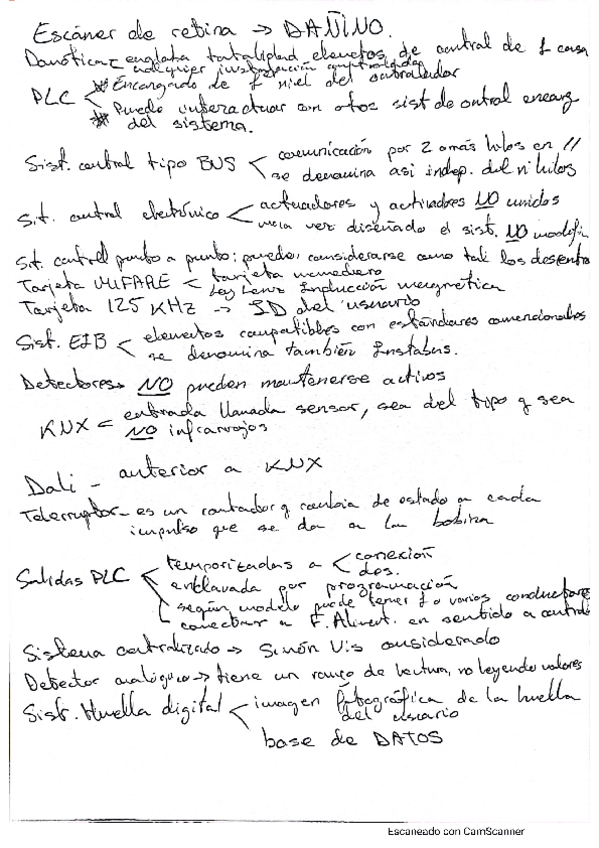 Escáner de retina → DAÑINO.
Domótica = engloba totalidad elementos de control de 1 casa
cualquier instalación
PLC < * Encargado de 1 nivel del controlador
* Puede interactuar con otos sist de control encarg
del sistema.
Sist. central tipo BUS < comunicación por 2 o más hilos en //
se denomina asi indep. del nº hilos
S.t. control electrónico < actuadores y activadores NO unidos
una vez diseñado el sist. NO modifi
S.t. control punto a punto: pueden considerarse como tali los descentra
Tarjeta MIFARE < tarjeta monedero
Ley Lenz Inducción magnética
Tarjeta 125 KHz → ID del usuario
Sist. EIB < elementos compatibles con estándares comencionados
se denomina también Instabus.
Detectores → NO pueden mantenerse activos
KNX = entrada llamada sensor, sea del tipo q sea
NO infrarrojos
Dali - anterior a KNX
Telerruptor - es un contador q cambia de estado a cada
impulso que se da a la bobina
Salidas PLC < temporizadas a < conexión
des.
enclavada por programación
según modelo puede tener 1 o varios conductores
conectar a F. Aliment. en sentido a control
Sistema centralizado → Simón Vis considerado
Detector analógico → tiene un rango de lectura, no leyendo valores
Sist. Huella digital < imagen fotográfica de la huella
del usuario
base de DATOS
Escaneado con CamScanner